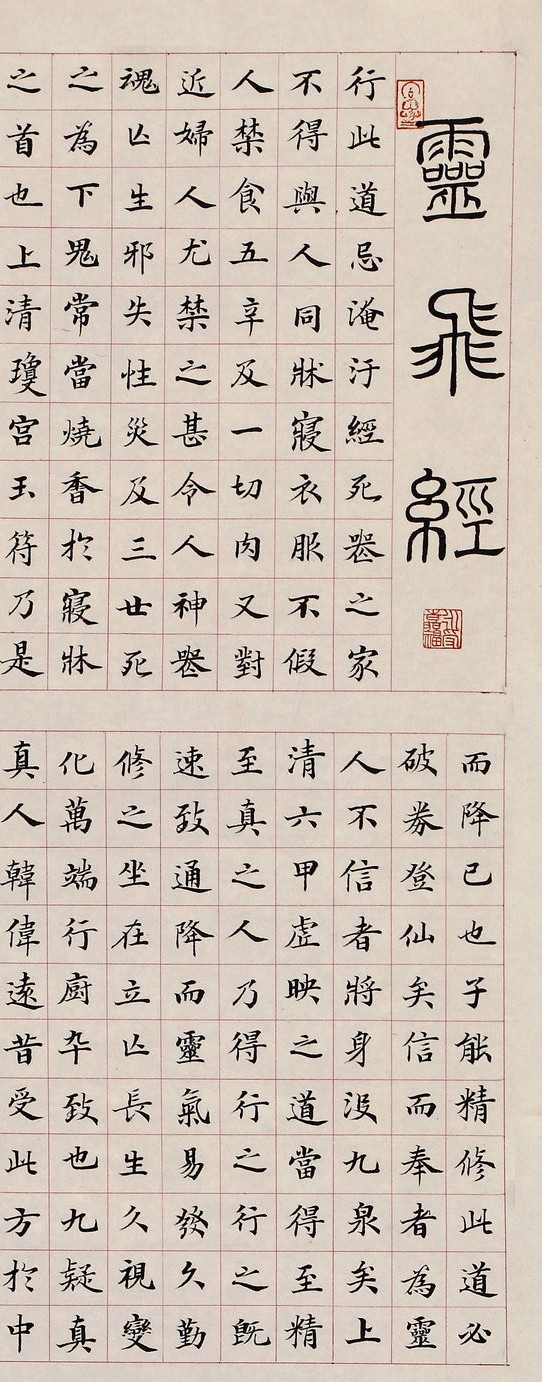 靈飛經
永受嘉福
行此道忌淹汙經死喪之家
不得與人同牀寢衣服不假
人禁食五辛及一切肉又對
近婦人尤禁之甚令人神喪
魂亡生邪失性災及三世死
之為下鬼常當燒香於寢牀
之首也上清瓊宮玉符乃是
而降已也子能精修此道必
破券登仙矣信而奉者為靈
人不信者將身沒九泉矣上
清六甲虛映之道當得至精
至真之人乃得行之行之既
速致通降而靈氣易發久勤
修之坐在立亡長生久視變
化萬端行廚卒致也九疑真
真人韓偉遠昔受此方於中